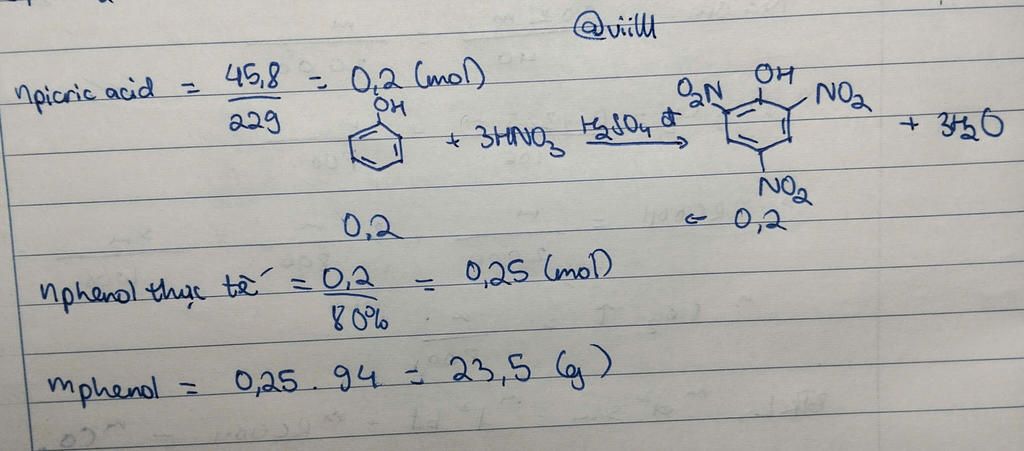 @viilll
npicric acid = 45,8 / 229 = 0,2 (mol)
OH + 3HNO3 H2SO4 đ → O2N OH NO2 NO2 + 3H2O
0,2 ← 0,2
nphenol thực tế = 0,2 / 80% = 0,25 (mol)
mphenol = 0,25 . 94 = 23,5 (g)